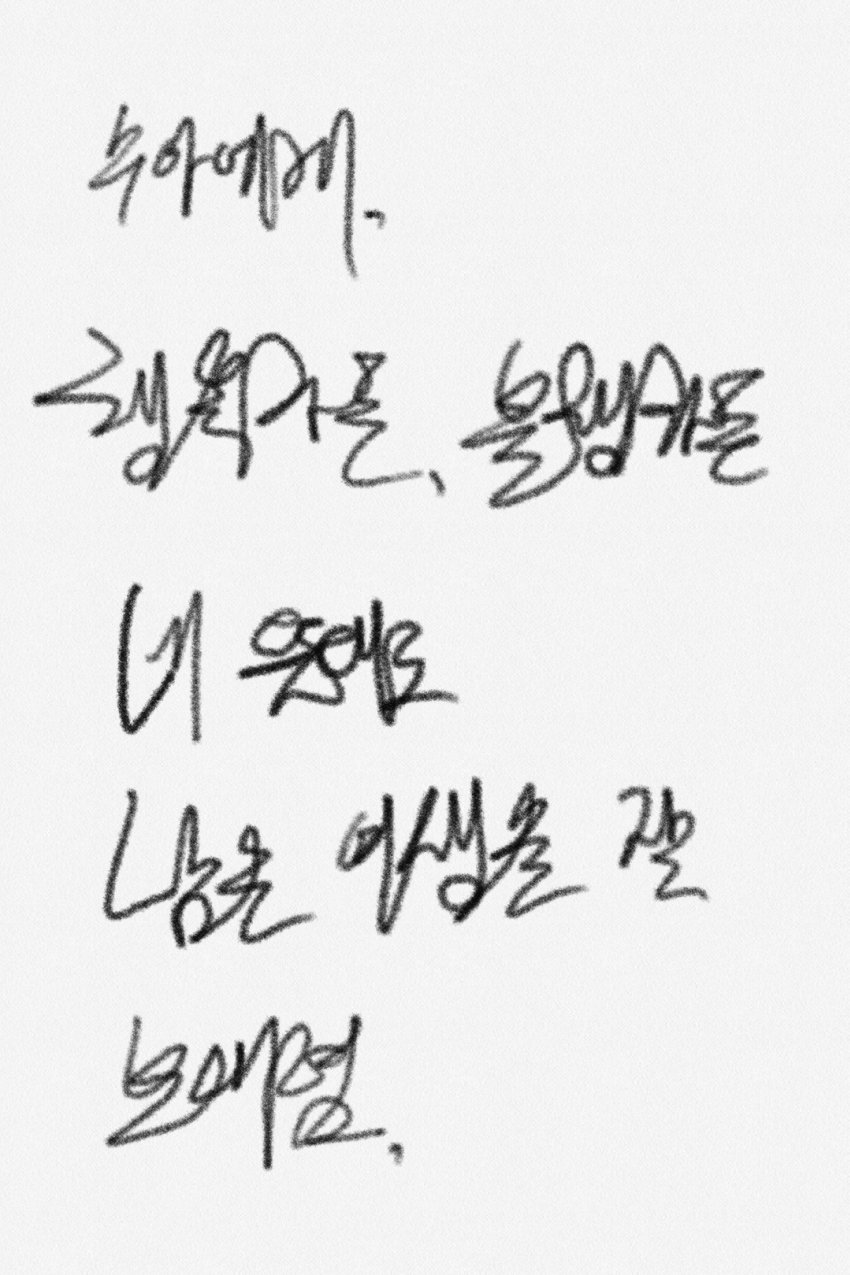 누아에게.
행복하든, 불행하든
네 뜻대로
남은 여생을 잘
보내렴.